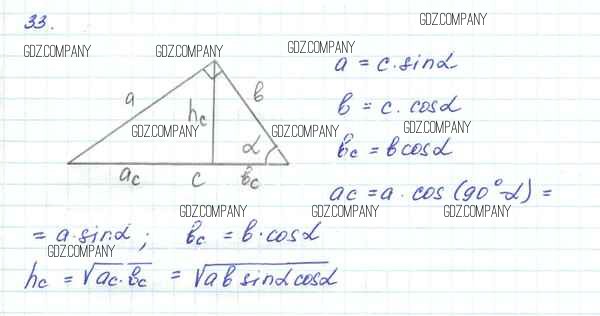 33.
GDZ.COMPANY
GDZ.COMPANY GDZ.COMPANY GDZ.COMPANY
a = c·sinα
a b
b = c·cosα
h_c
GDZ.COMPANY GDZ.COMPANY GDZ.COMPANY
α
b_c = b cosα
a_c c b_c
a_c = a·cos(90°-α) =
GDZ.COMPANY GDZ.COMPANY GDZ.COMPANY
= a·sinα; b_c = b·cosα
GDZ.COMPANY
h_c = √a_c·b_c = √ab sinα cosα